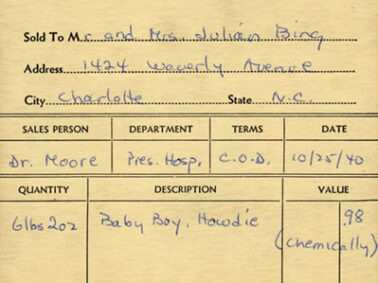 Sold To Mr. and Mrs. Julian Bing
Address 1424 Waverly Avenue
City Charlotte State N.C.
SALES PERSON DEPARTMENT TERMS DATE
Dr. Moore Pres. Hosp. C.O.D. 10/25/40
QUANTITY DESCRIPTION VALUE
6lbs 2oz Baby Boy, Howdie .98
(Chemically)